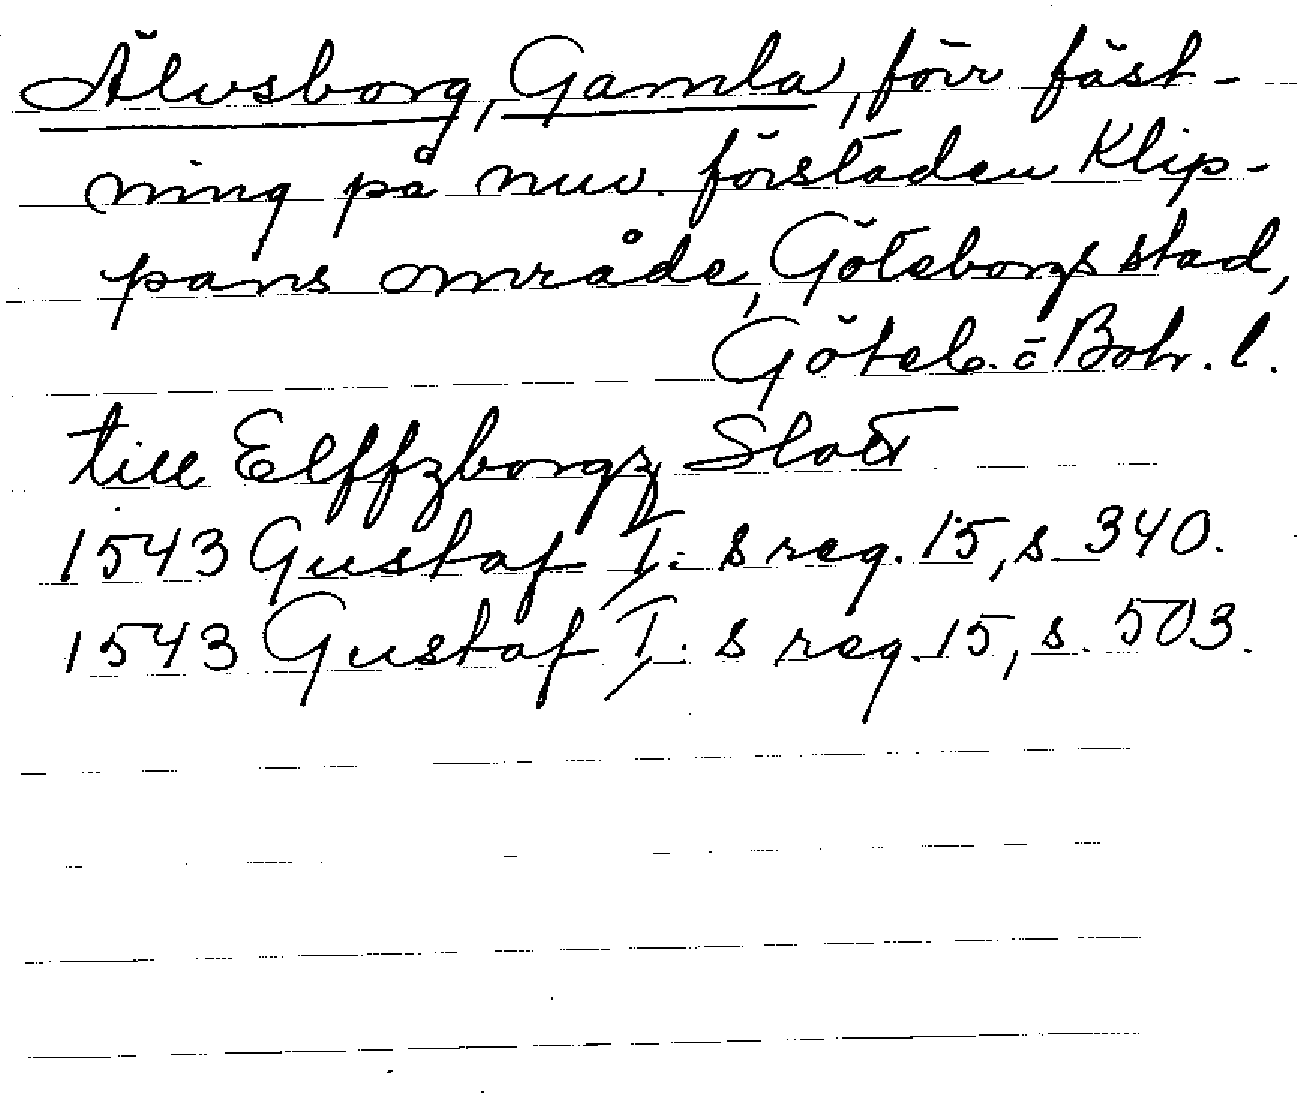 Älvsborg, Gamla, förr fäst-
ning på nuv. förstaden Klip-
pans område, Göteborgs stad,
Göteb. o Boh. l.
till Elffzborgz Slott
1543 Gustaf I:s reg. 15, s 340.
1543 Gustaf I:s reg. 15, s. 503.